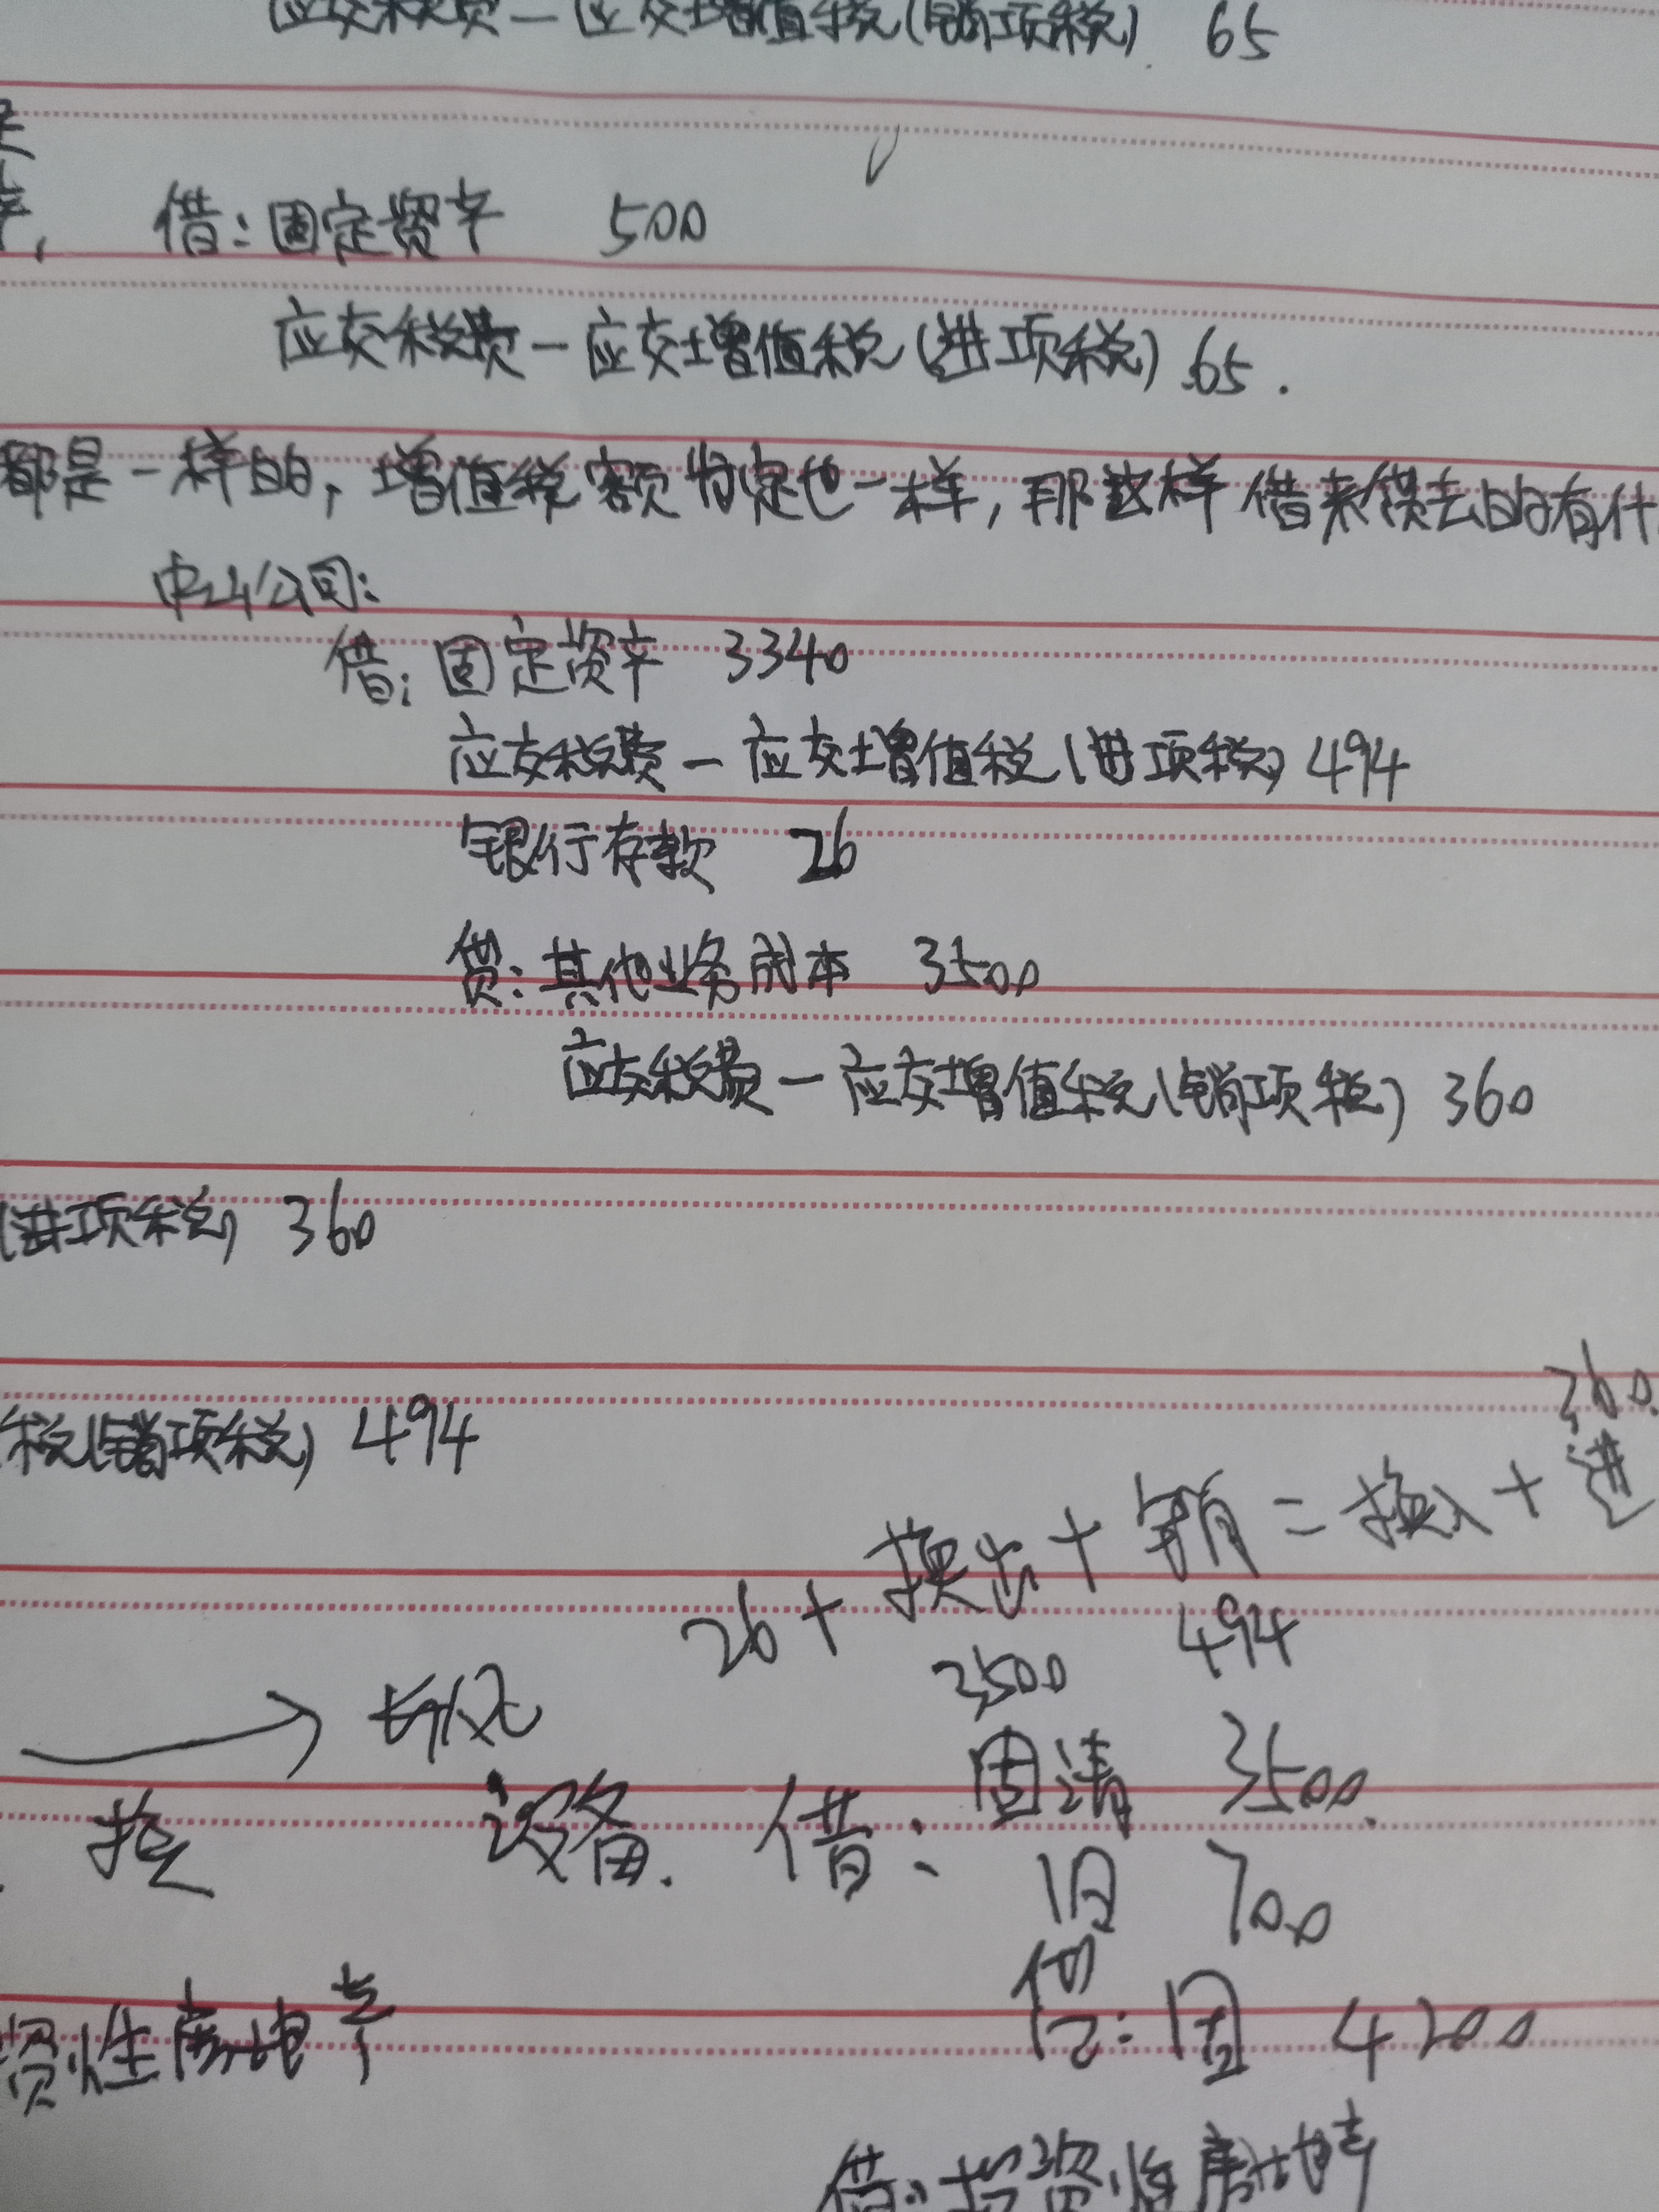 应交税费—应交增值税(销项税) 65
借:固定资产 500
应交税费—应交增值税(进项税) 65.
都是一样的,增值税额肯定也一样,那这样借来贷去的有什
中山公司:
借:固定资产 3340
应交税费—应交增值税(进项税) 494
银行存款 26
贷:其他业务成本 3500
应交税费—应交增值税(销项税) 360
(进项税) 360
税(销项税) 494
360.
26+换出+销=换入+进
3500 494
→长风
换 设备. 借:固清 3500.
旧 700
贷:固 4200
资性房地产
借:投资性房地产